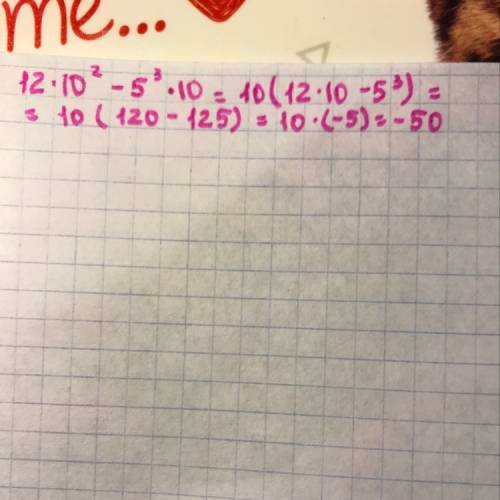 me...
12·10² - 5³·10 = 10(12·10 - 5³) =
= 10 (120 - 125) = 10·(-5) = -50